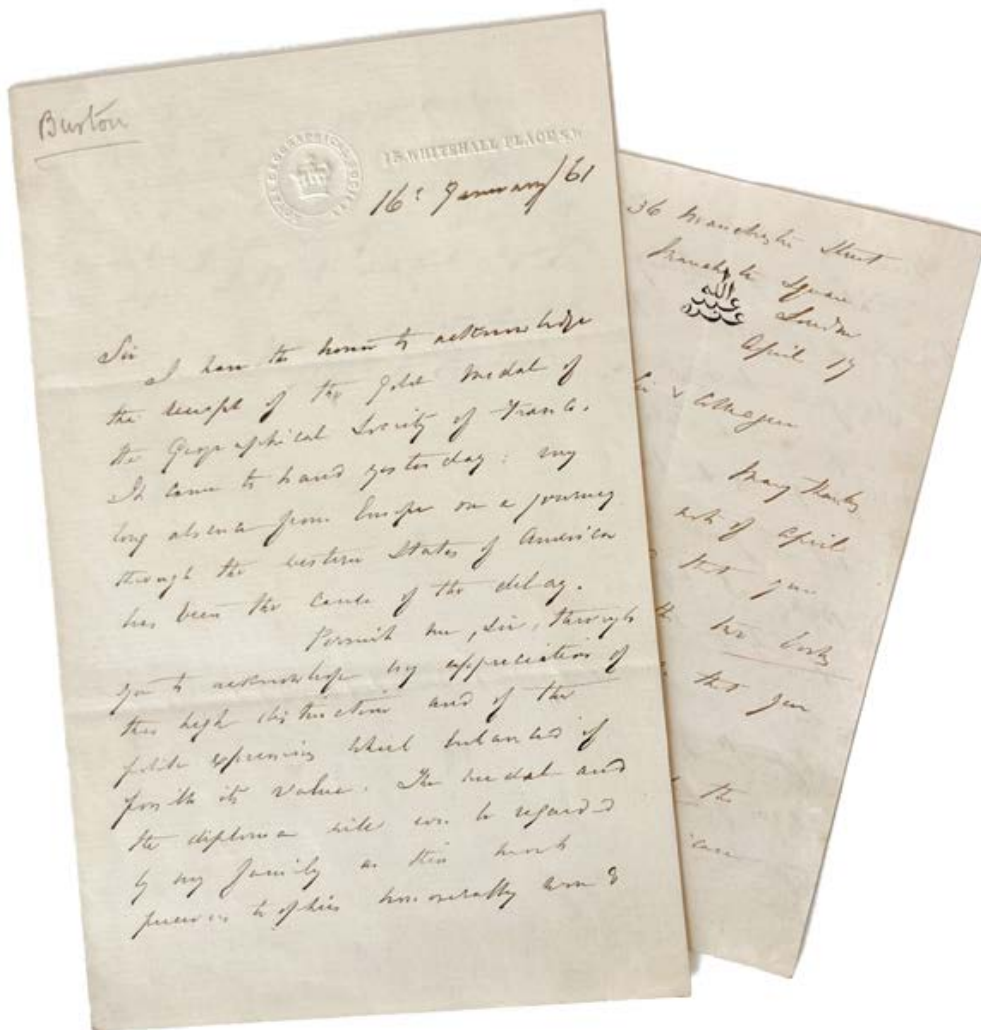 Burton
ROYAL GEOGRAPHICAL SOCIETY
15, WHITEHALL PLACE S.W.
16: January/61
Sir
I have the honor to acknowledge
the receipt of the Gold Medal of
the Geographical Society of France.
It came to hand yesterday: my
long absence from Europe on a journey
through the western States of America
has been the cause of the delay.
Permit me, Sir, through
you to acknowledge my appreciation of
this high distinction and of the
polite expressions which
its value. The medal and
the diploma will ever be regarded
by my family as their most
precious trophies honorably won &
36 Manchester Street
Manchester Square
London
April 17
عبد الله
Many thanks
of April
that you
the two books
that you
the